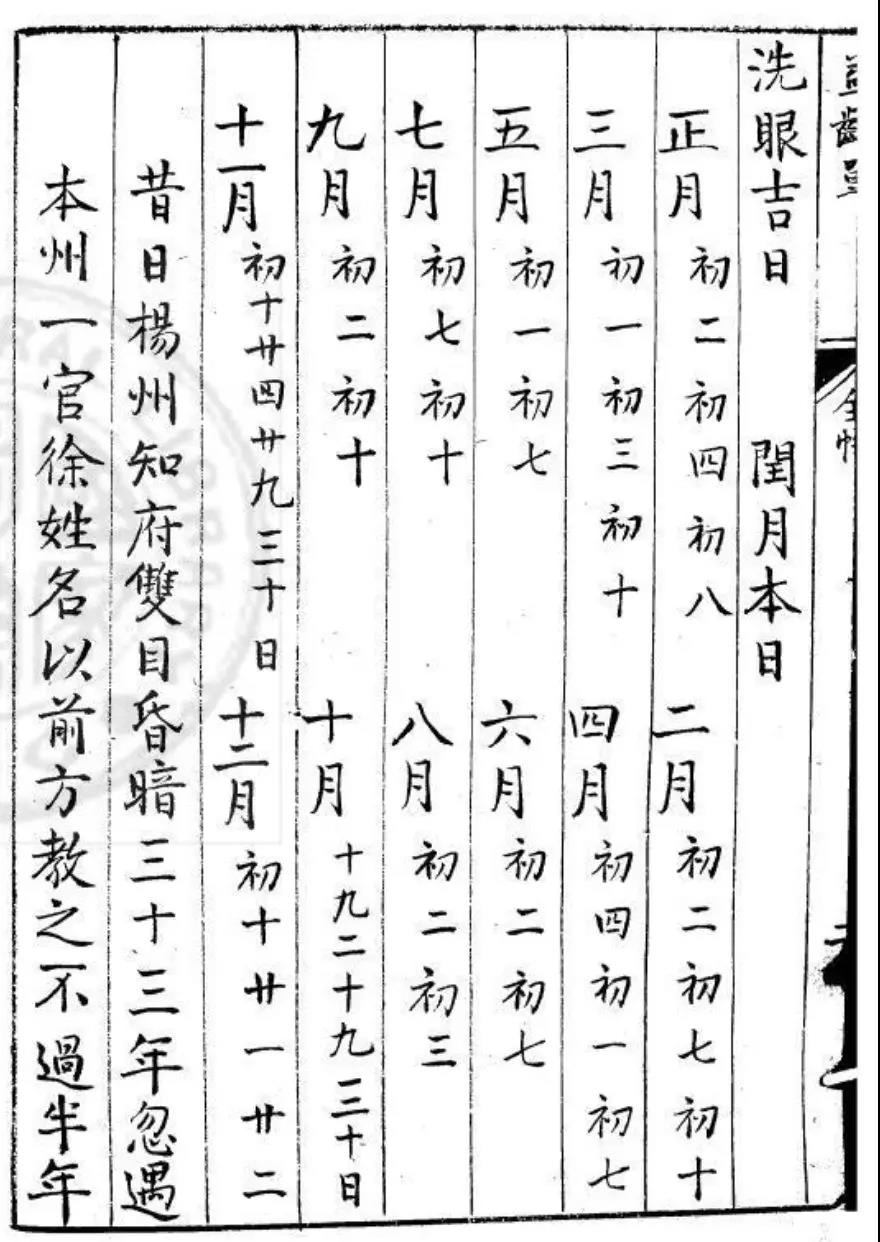 洗眼吉日 閏月本日
正月 初二 初四 初八 二月 初二 初七 初十
三月 初一 初三 初十 四月 初四 初一 初七
五月 初一 初七 六月 初二 初七
七月 初七 初十 八月 初二 初三
九月 初二 初十 十月 十九 二十九 三十日
十一月 初十 廿四 廿九 三十日 十二月 初十 廿一 廿二
昔日楊州知府雙目昏暗三十三年忽遇
本州一官徐姓名以前方教之不過半年